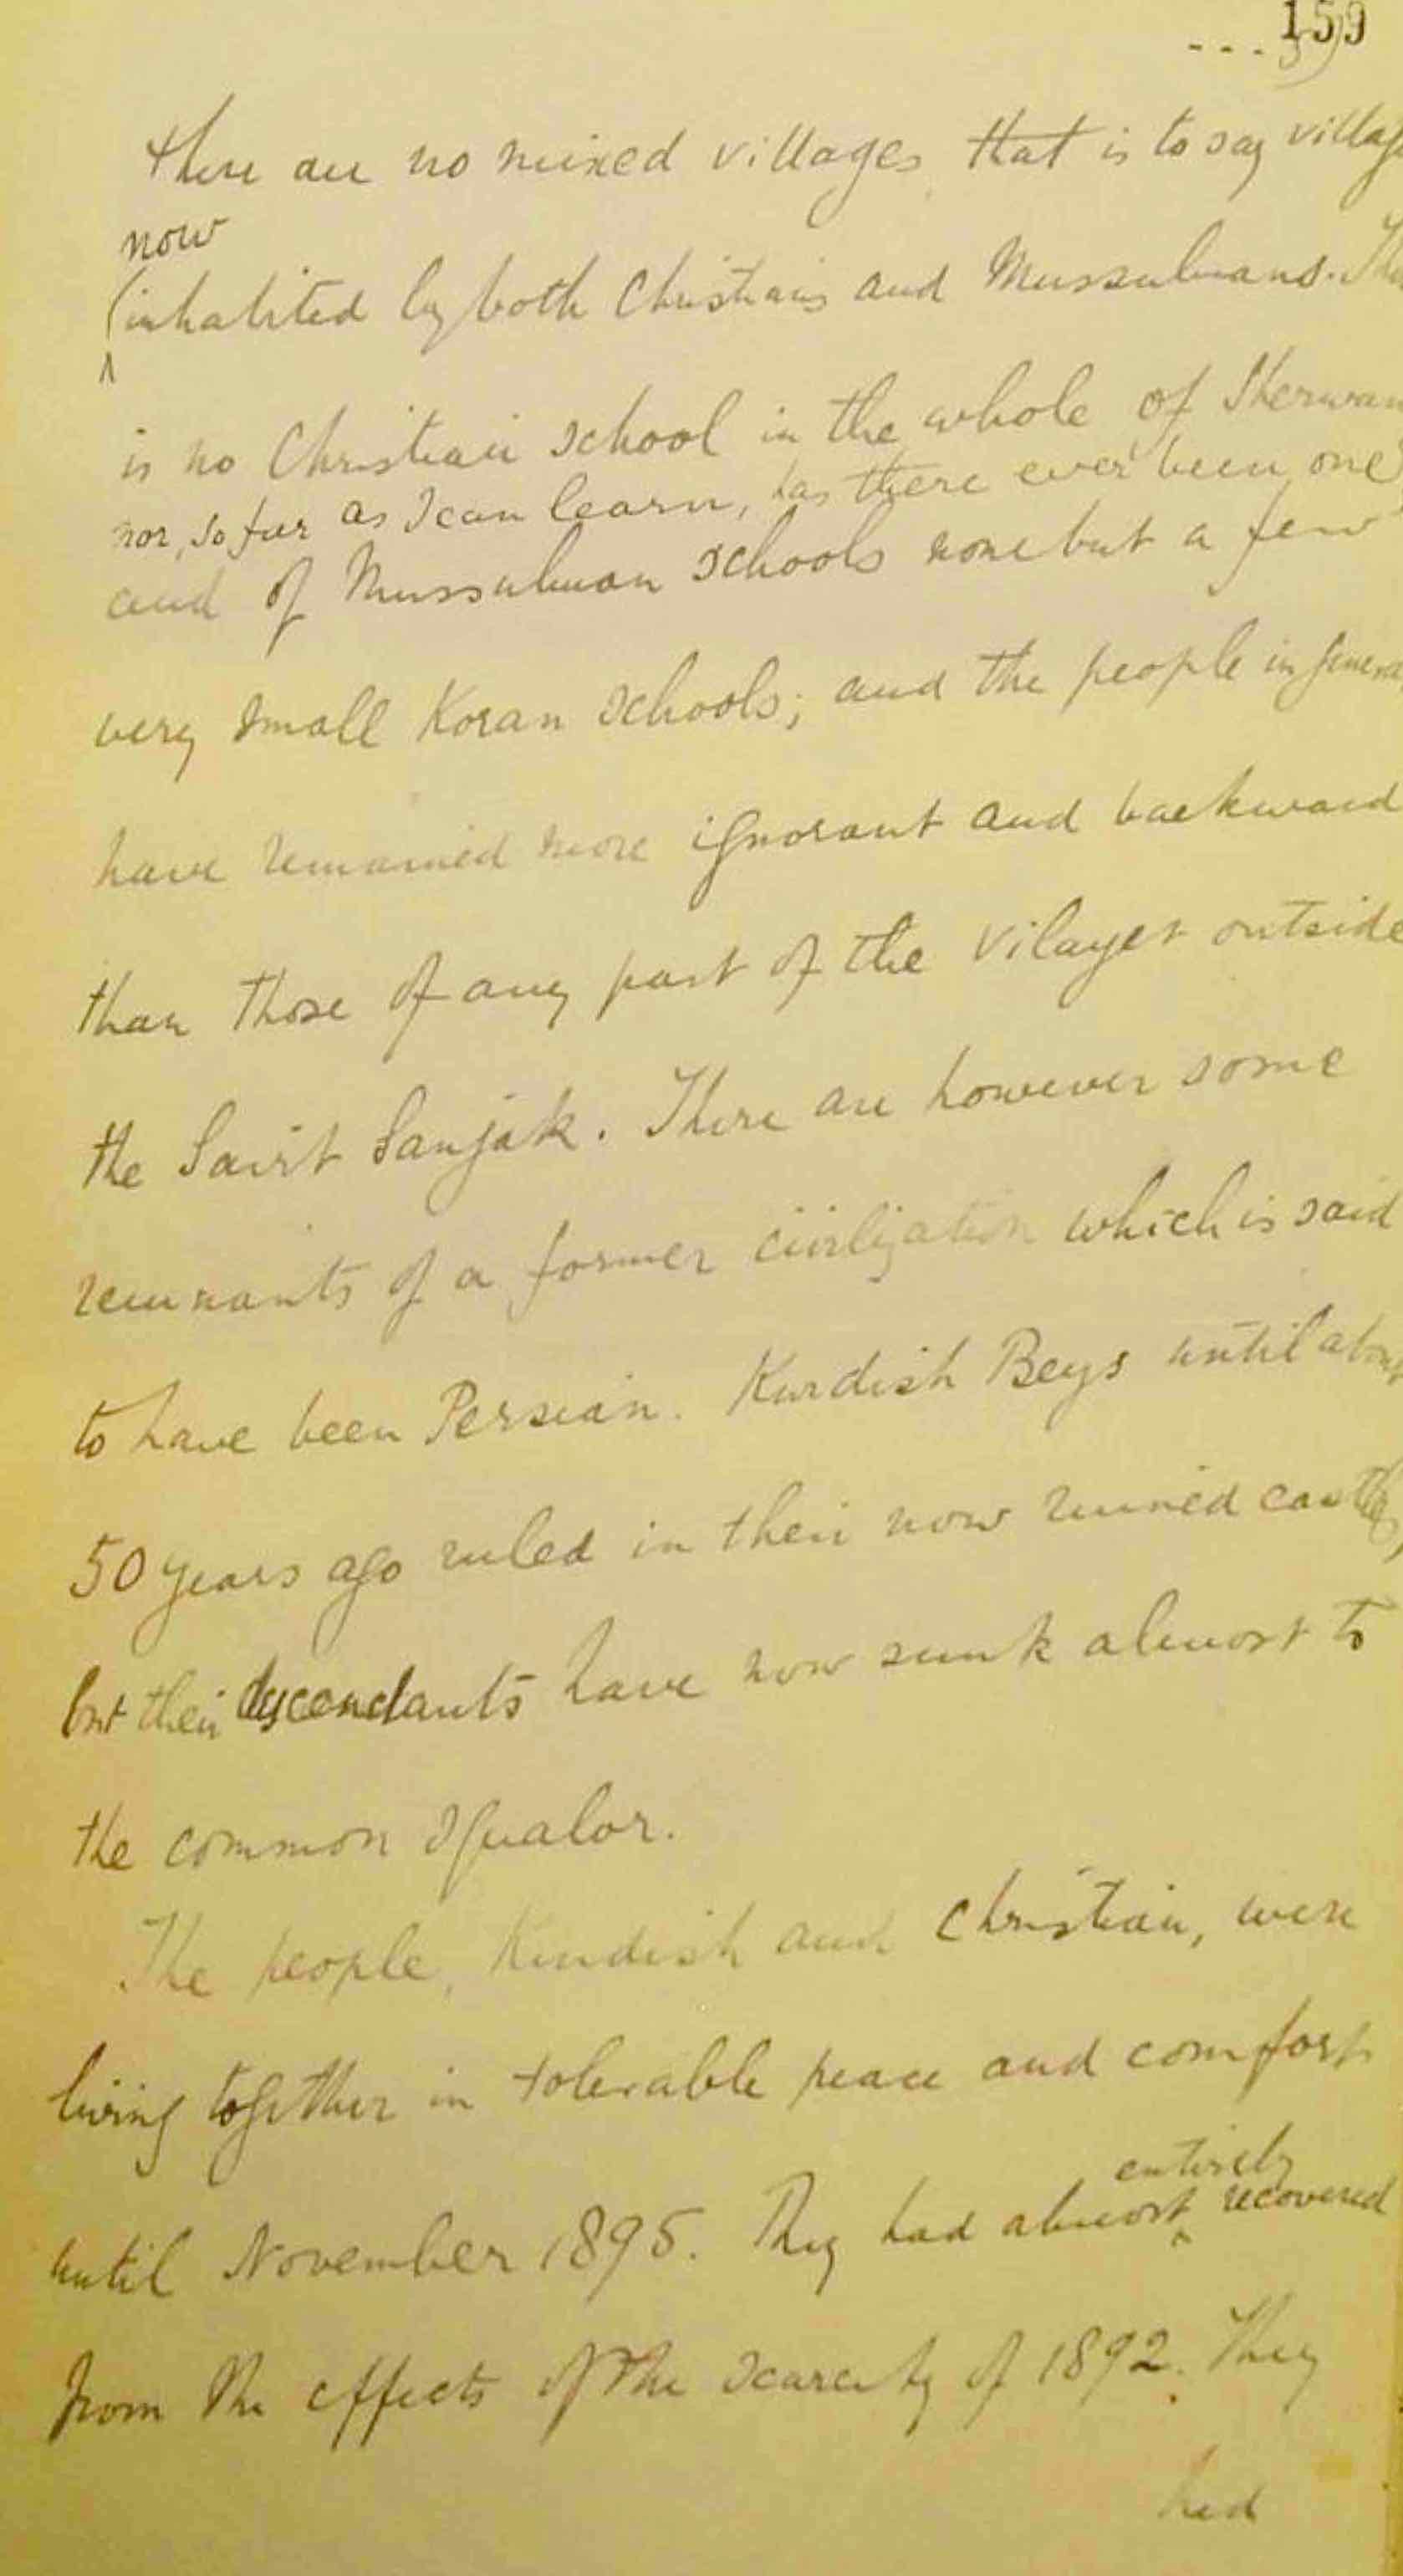 159
... 5)
there are no mixed villages, that is to say villag
now
(inhabited by both Christians and Mussulmans. The
is no Christian school in the whole of Sherwan
nor, so far as I can learn, has there ever been one
and of Mussulman schools none but a few
very small Koran schools; and the people in genera
have remained more ignorant and backward
than those of any part of the Vilayet outside
the Sairt Sanjak. There are however some
remnants of a former civilization which is said
to have been Persian. Kurdish Beys until about
50 years ago ruled in their now ruined castles,
but their descendants have now sunk almost to
the common squalor.
The people, Kurdish and Christian, were
living together in tolerable peace and comfort
entirely
until November 1895. They had almost ^ recovered
from the effects of the scarcity of 1892. They
had